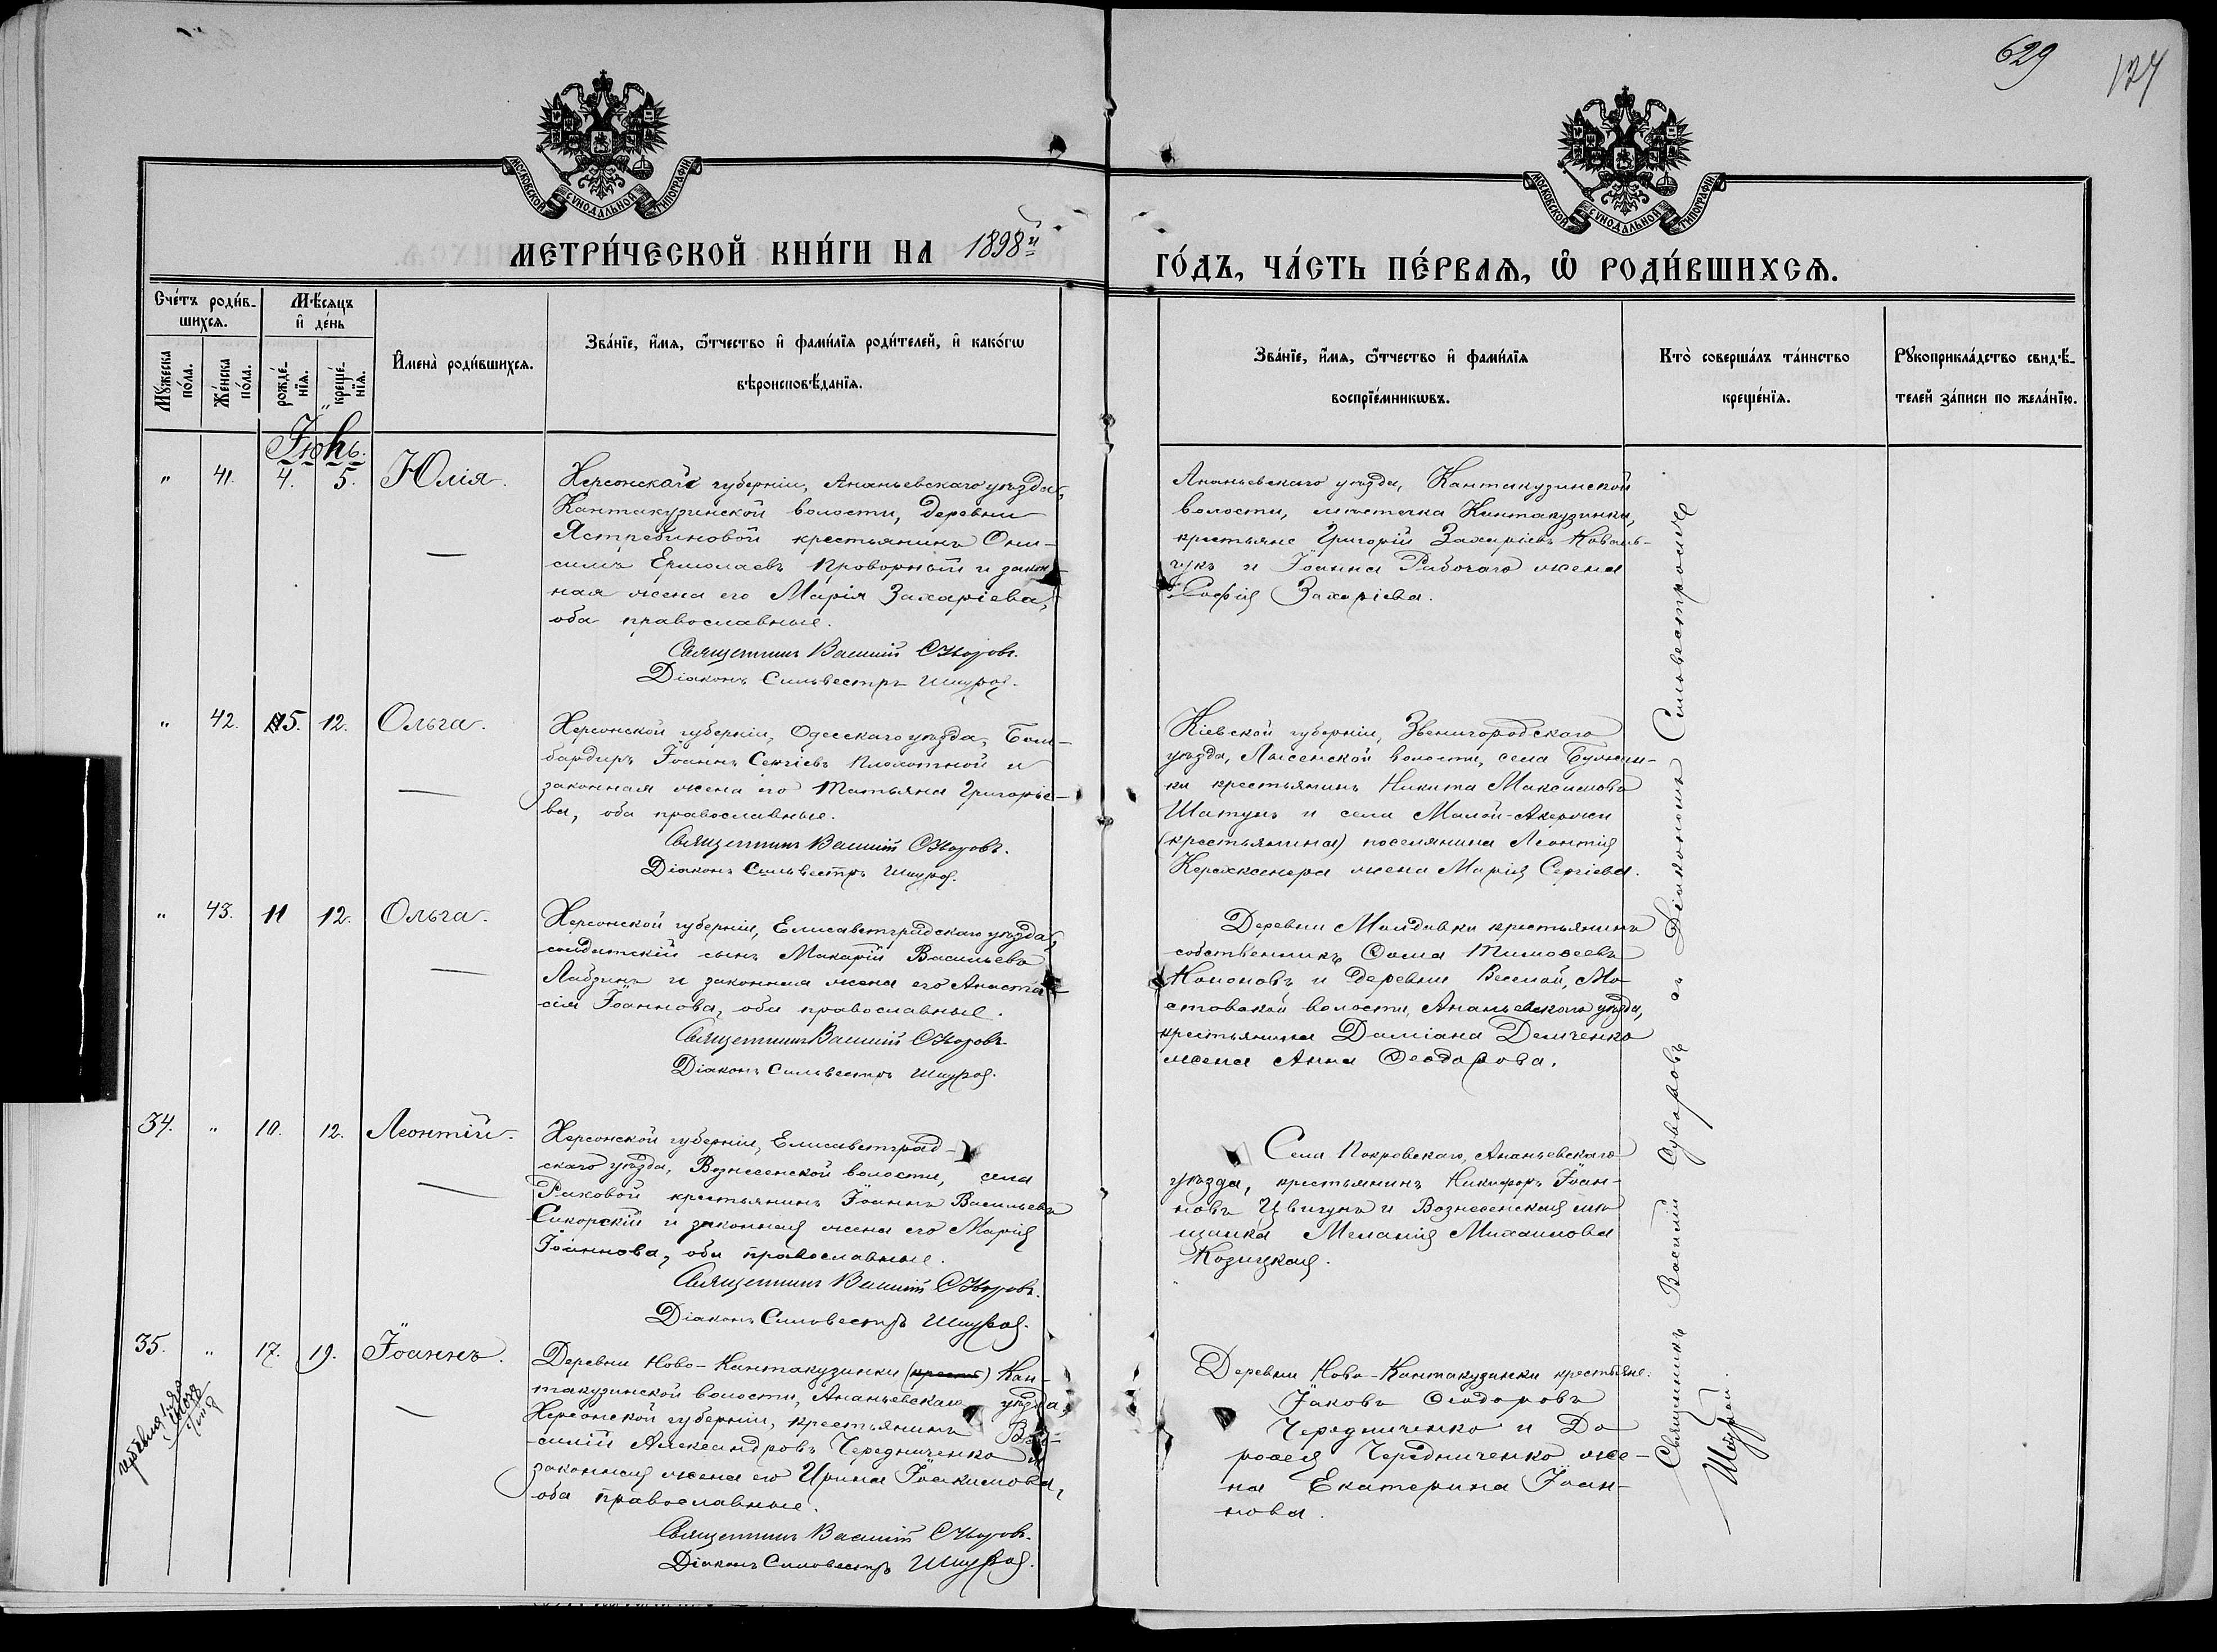 629
124
МОСКОВСКОЙ СѴНОДАЛЬНОЙ ТИПОГРАФІИ
МОСКОВСКОЙ СѴНОДАЛЬНОЙ ТИПОГРАФІИ
МЕТРИ́ЧЕСКОЙ КНИ́ГИ НА 1898й
ГО́ДЪ, ЧА́СТЬ ПЕ́РВАѦ, Ѽ РОДИ́ВШИХСѦ.
Сче́тъ роди́в-
шихсѧ.
Мѣ́сѧцъ
и҆ де́нь
Мꙋ́жеска
по́ла.
Же́нска
по́ла.
рожде́-
нїѧ.
креще́-
нїѧ.
И҆мена̀ роди́вшихсѧ.
Зва́нїе, и҆́мѧ, ѻ҆́тчество и҆ фами́лїѧ роди́телей, и҆ како́гѡ
вѣроисповѣ́данїѧ.
Зва́нїе, и҆́мѧ, ѻ҆́тчество и҆ фами́лїѧ
воспрїе́мникѡвъ.
Кто̀ соверша́лъ та́инство
креще́нїѧ.
Рꙋкоприкла́дство свидѣ́-
телей за́писи по жела́нїю.
Іюнь.
" 41. 4. 5. Юлія.
Херсонской губерніи, Ананьевскаго уѣзда,
Кантакузинской волости, деревни
Ястребиновой крестьянинъ Они-
симъ Ермолаевъ Проворный и закон-
ная жена его Марія Захаріева,
оба православные.
Священникъ Василій Суворовъ.
Діаконъ Сильвестръ Шкурой.
Ананьевскаго уѣзда, Кантакузинской
волости, мѣстечка Кантакузинки,
крестьяне Григорій Захаріевъ Коваль-
чукъ и Іоанна Рабочаго жена
Софія Захаріева.
" 42. 5. 12. Ольга.
Херсонской губерніи, Одесскаго уѣзда, Бом-
бардиръ Іоаннъ Сергіевъ Плохотной и
законная жена его Татьяна Григоріе-
ва, оба православные.
Священникъ Василій Суворовъ.
Діаконъ Сильвестръ Шкурой.
Кіевской губерніи, Звенигородскаго
уѣзда, Лысенской волости, села
ки крестьянинъ Никита Максимовъ
Шатунъ и села Малой-Акаржи
(крестьянина) поселянина Леонтія
жена Марія Сергіева.
" 43. 11 12. Ольга.
Херсонской губерніи, Елисаветградскаго уѣзда,
солдатскій сынъ Макарій Васильевъ
Лабзинъ и законная жена его Анаста-
сія Іоаннова, оба православные.
Священникъ Василій Суворовъ.
Діаконъ Сильвестръ Шкурой.
Деревни Молдавки крестьянинъ
собственникъ Ѳома Тимоѳеевъ
Кононовъ и деревни Веселой, Мо-
стовской волости, Ананьевскаго уѣзда,
крестьянина Даміана Демченко
жена Анна Ѳеодорова.
34. " 10. 12. Леонтій.
Херсонской губерніи, Елисаветград-
скаго уѣзда, Вознесенской волости, села
Раковой крестьянинъ Іоаннъ Васильевъ
Сикорскій и законная жена его Марія
Іоаннова, оба православные.
Священникъ Василій Суворовъ.
Діаконъ Сильвестръ Шкурой.
Села Покровскаго, Ананьевскаго
уѣзда, крестьянинъ Никифоръ Іоан-
новъ Цвигунъ и Вознесенская мѣ
щанка Меланія Михаилова
Козицкая.
35. " 17. 19. Іоаннъ.
Деревни Ново-Кантакузинки (крест) Кан-
такузинской волости, Ананьевскаго уѣзда,
Херсонской губерніи, крестьянинъ Ва-
силій Александровъ Чередниченко и
законная жена его Ирина Іоакимова,
оба православные.
Священникъ Василій Суворовъ.
Діаконъ Сильвестръ Шкурой.
Деревни Ново-Кантакузинки крестьяне.
Іаковъ Ѳеодоровъ
Чередниченко и До
роѳея Чередниченко же-
на Екатерина Іоан-
нова.
Священникъ Василій Суворовъ съ Діакономъ Сильвестромъ
Шкурой.